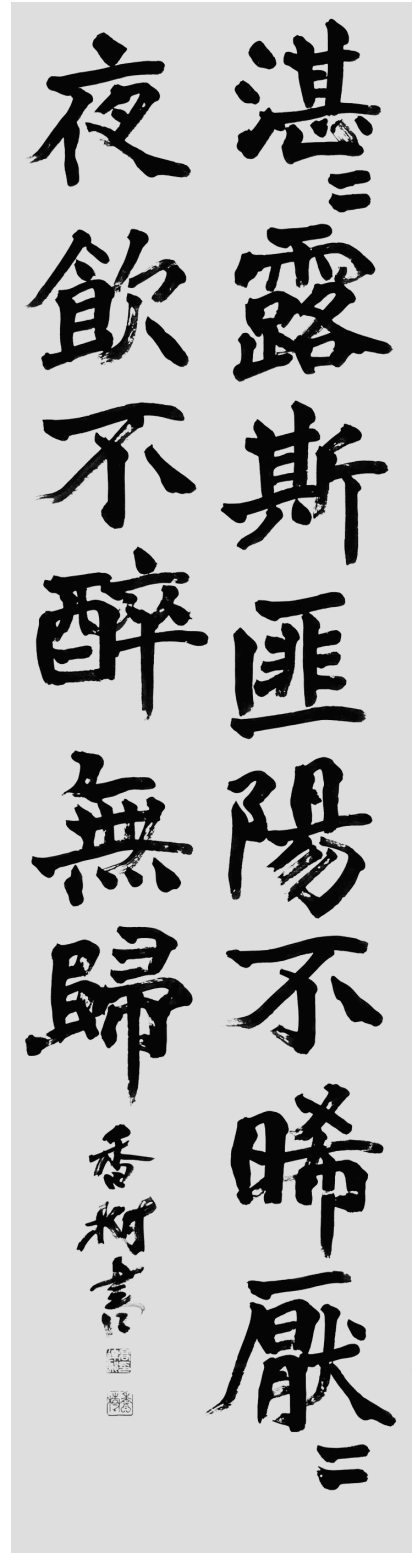 湛〻露斯匪陽不晞厭〻
夜飲不醉無歸
香樹書